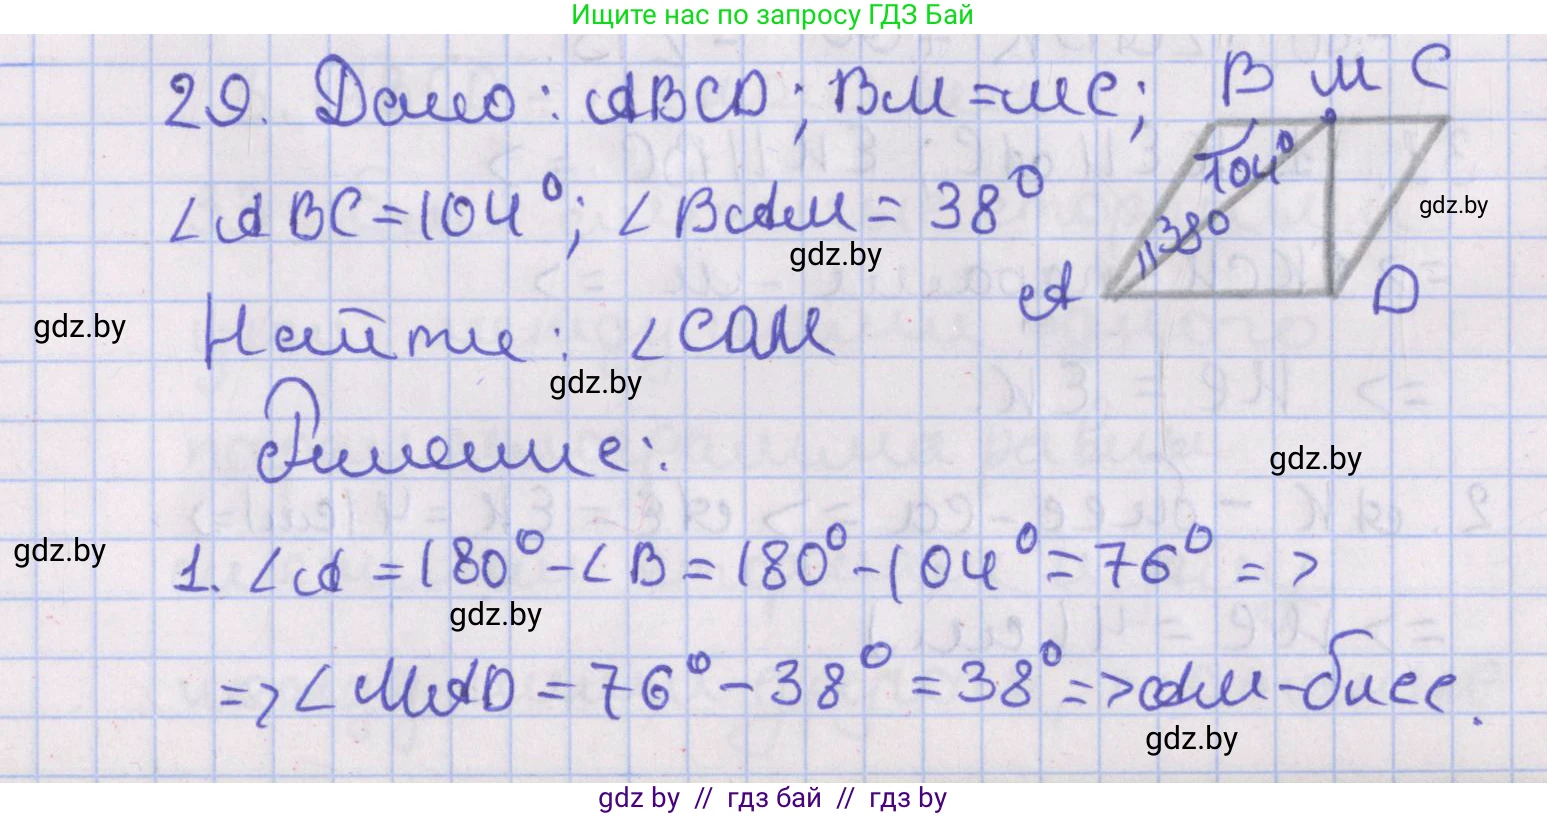 Ищите нас по запросу ГДЗ Бай
29. Дано: ABCD; BM = MC;
B M C
104°
gdz.by
∠ABC = 104°; ∠BAM = 38°
38°
gdz.by
A
D
Найти: ∠CDM
gdz.by
gdz.by
Решение:
gdz.by
gdz.by
1. ∠A = 180° - ∠B = 180° - 104° = 76° =>
gdz.by
=> ∠MAD = 76° - 38° = 38° => AM - бисс.
gdz.by
gdz by // гдз бай // гдз by